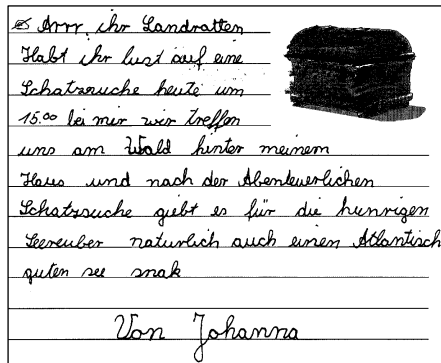 Arrr ihr Landratten
Habt ihr lust auf eine
Schatzsuche heute um
15.00 bei mir wir treffen
uns am Wald hinter meinem
Haus und nach der Abenteuerlichen
Schatzsuche giebt es für die hunrigen
Seereuber naturlich auch einen Atlantisch
guten see snak
Von Johanna